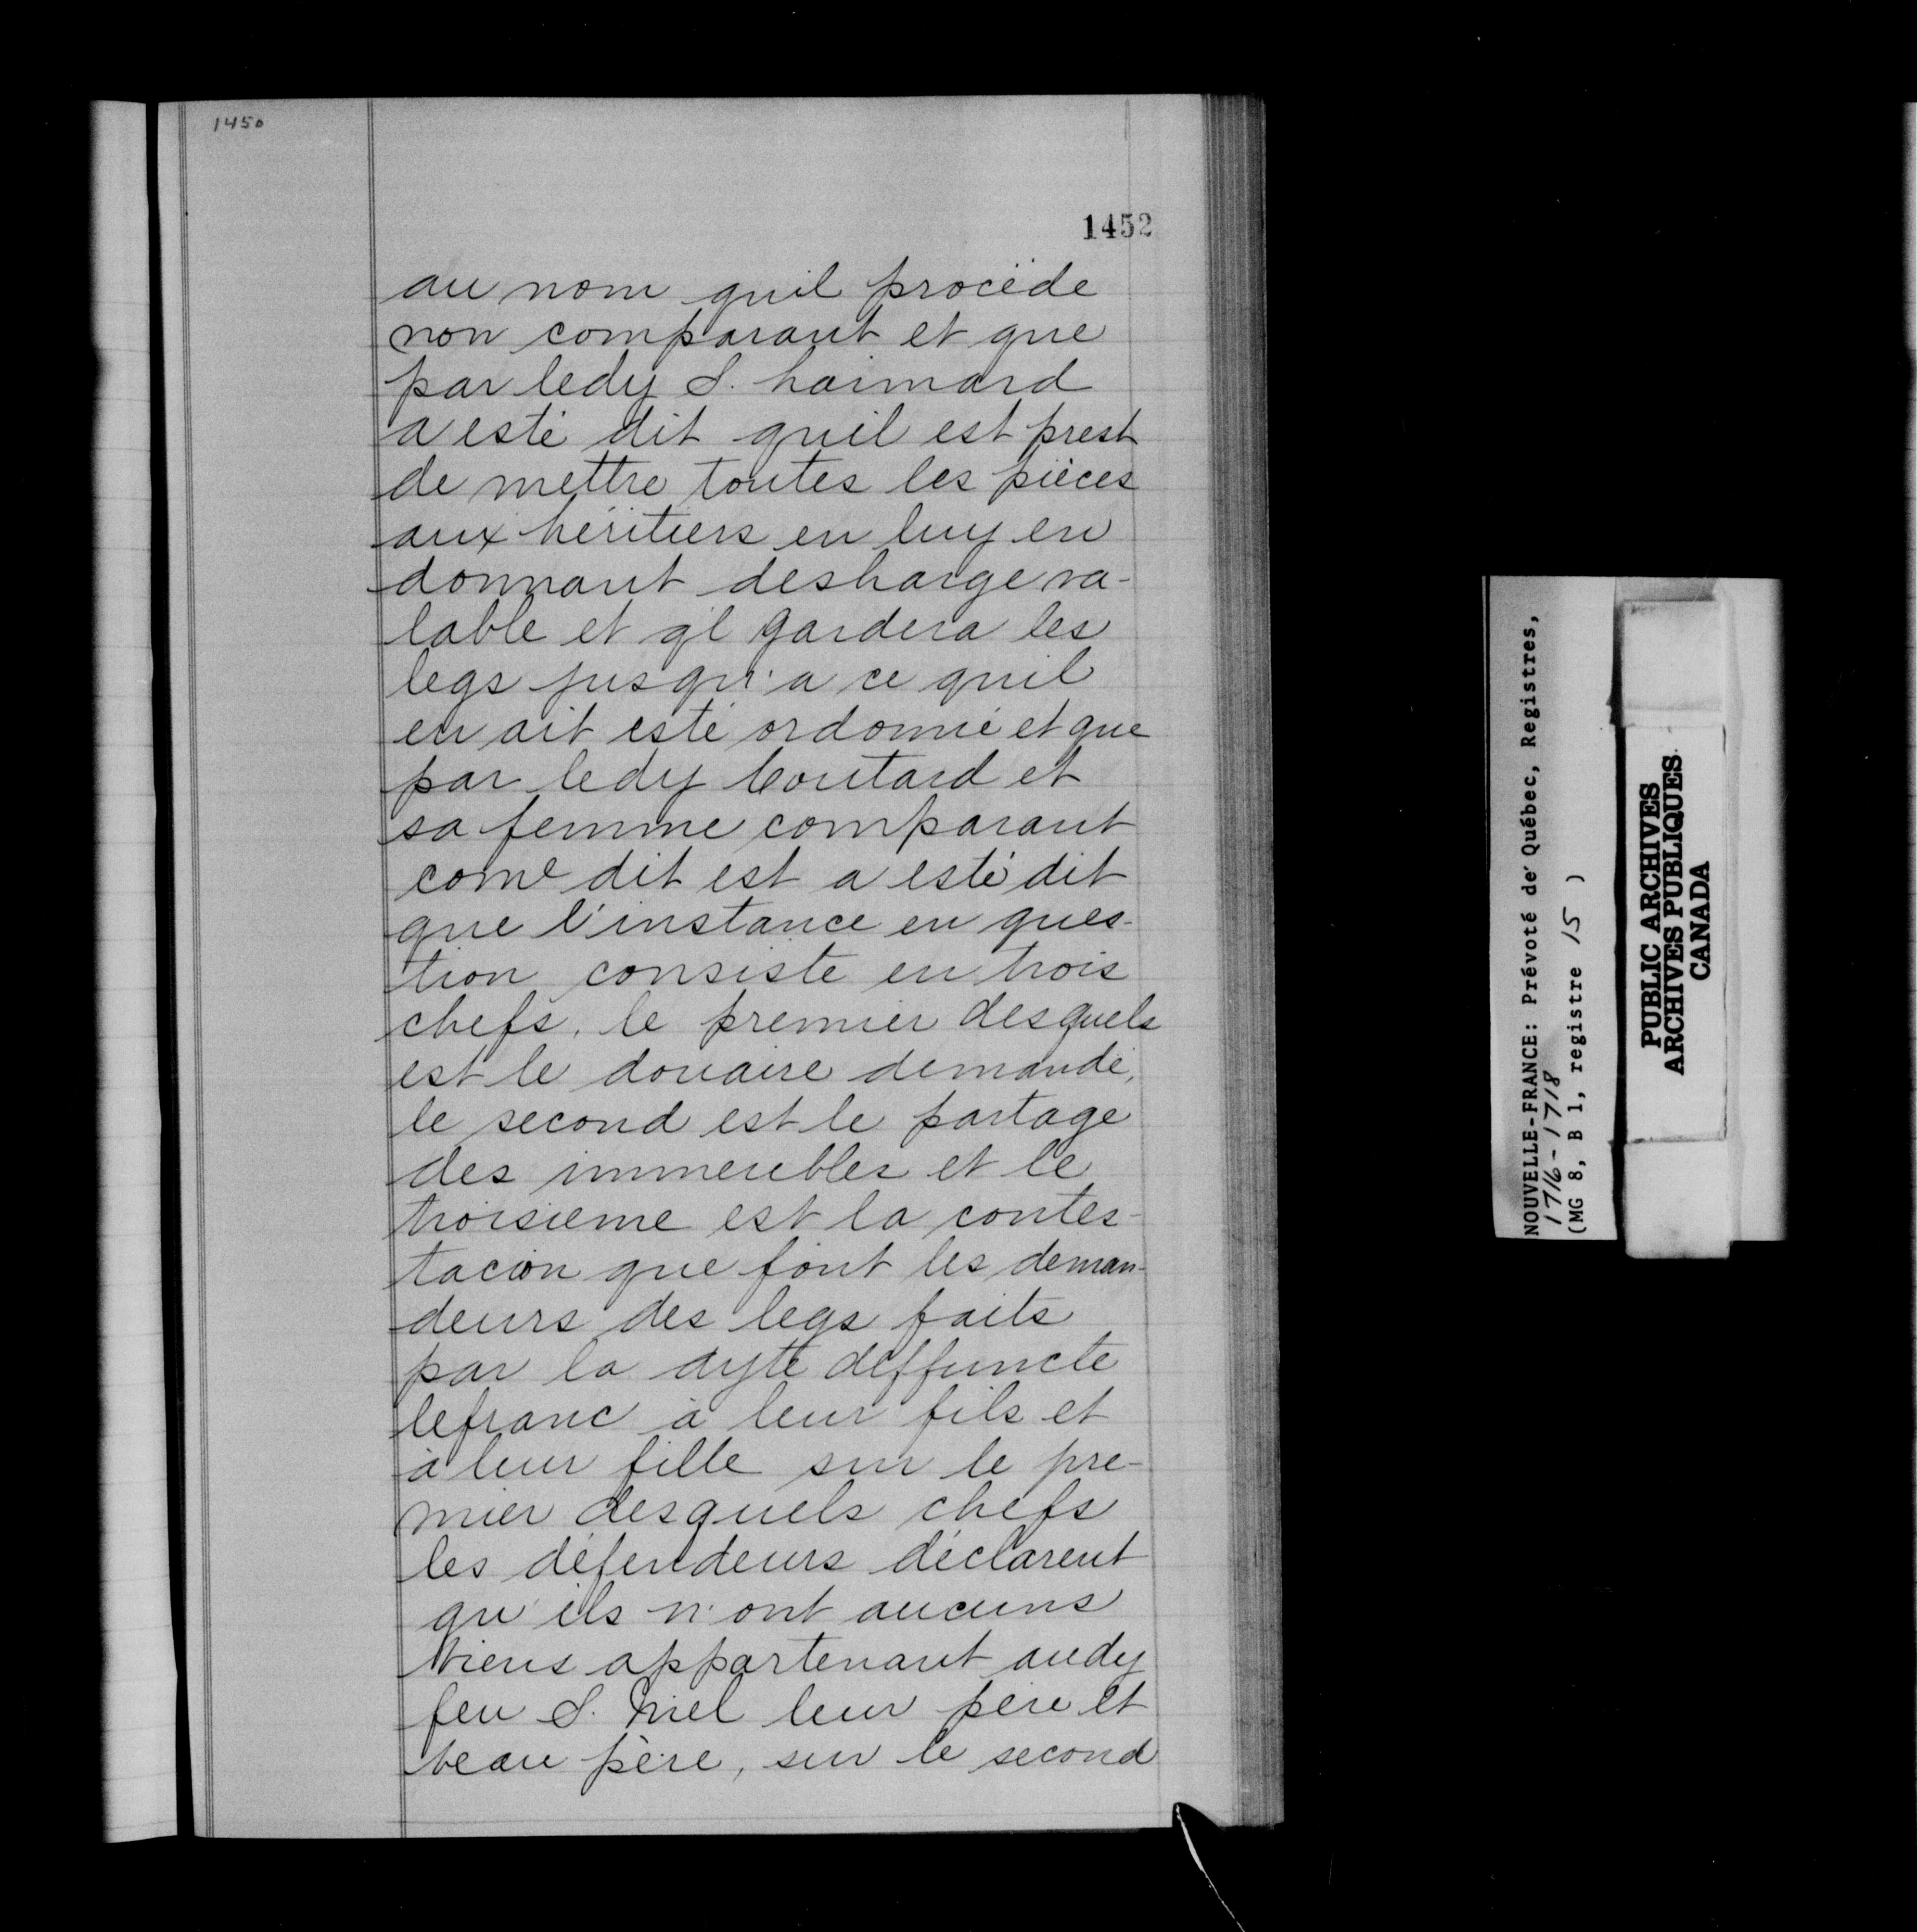 1450
1452
au nom quil procède
non comparant et que
par ledy S. haimard
a esté dit quil est prest
de mettre toutes les pièces
aux héritiers en luy en
donnant descharge va-
lable et ql gardera les
legs jusqu'a ce quil
en ait esté ordonné et que
par ledy Coutard et
sa femme comparant
come dit est a esté dit
que l'instance en ques-
tion consiste en trois
chefs, le premier desquels
est le douaire demandé,
le second est le partage
des immeubles et le
troisieme est la contes-
tacion que font les deman-
deurs des legs faits
par la dyte deffuncte
lefranc à leur fils et
à leur fille sur le pre-
mier desquels chefs
les défendeurs déclarent
qu'ils n'ont aucuns
biens appartenant audy
feu S. Niel leur père et
beau père, sur le second
NOUVELLE-FRANCE: Prévoté de Québec, Registres,
1716-1718
(MG 8, B 1, registre 15 )
PUBLIC ARCHIVES
ARCHIVES PUBLIQUES
CANADA